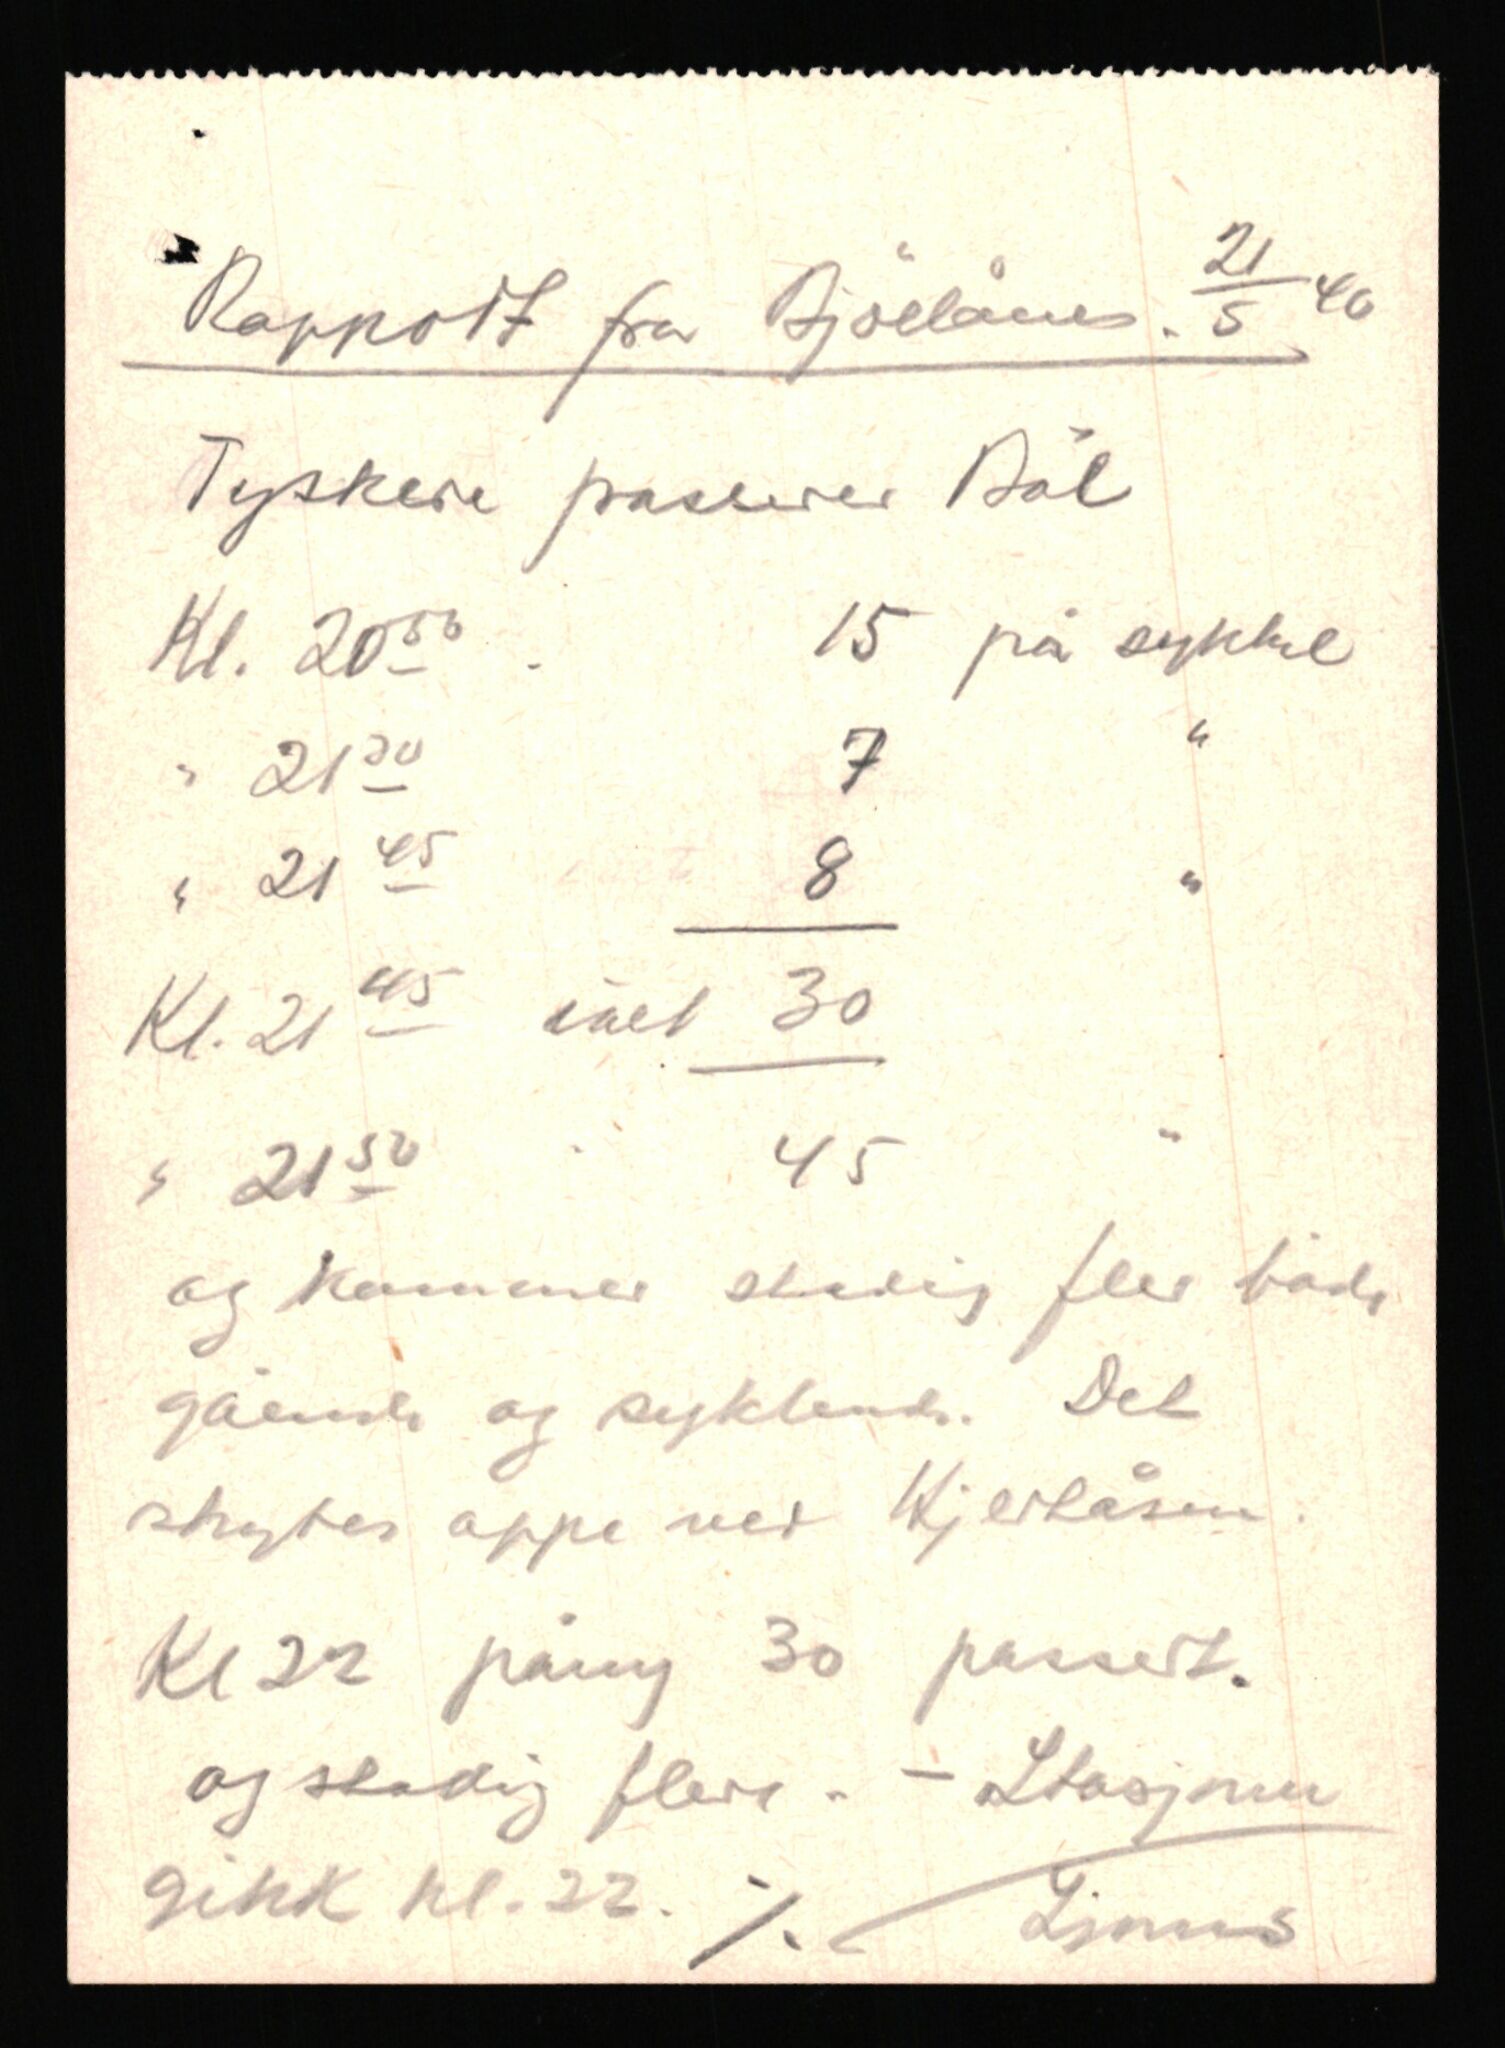 Rapport fra Bjöllånes. 21/5 40
Tyskere passerer Bål
Kl. 20 50 . 15 på sykkel
" 21 30 7 "
" 21 45 8 "
Kl. 21 45 ialt 30
" 21 50 45 "
og kommer stadig fler både
gående og syklende. Det
skytes oppe ved Hjertåsen.
Kl 22 påny 30 passert.
og stadig flere. - Stasjonen
gikk kl. 22. ./.